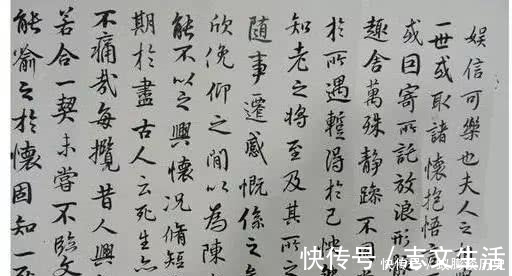 娱信可樂也夫人之
一世或取諸懷抱悟
或因寄所託放浪形
趣舍萬殊静躁不
於所遇輒得於己
知老之將至及其所之
随事遷感慨係之
欣俛仰之間以為陳
能不以之興懷況脩短
期於盡古人云死生亦
不痛哉每攬昔人興
若合一契未嘗不臨文
能喻之於懷固知一死
快传号/志文生活